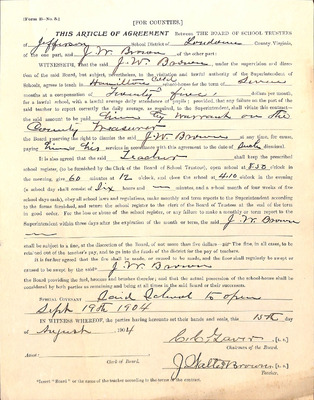 [Form B—No. 6.]
[FOR COUNTIES.]
THIS ARTICLE OF AGREEMENT Between THE BOARD OF SCHOOL TRUSTEES
of Jefferson School District of Loudoun County, Virginia,
of the one part, and J. W. Brown of the other part:
WITNESSETH, That the said J. W. Brown, under the supervision and direc-
tion of the said Board, but subject, nevertheless, to the visitation and lawful authority of the Superintendent of
Schools, agrees to teach in Hamilton Cold school-house for the term of Seven
months at a compensation of Twenty five dollars per month,
for lawful school, with a lawful average daily attendance of pupils; provided, that any failure on the part of the
said teacher to report correctly the daily average, as required, to the Superintendent, shall vitiate this contract—
the said amount to be paid him by warrant on the
County Treasurer
the Board reserving the right to dismiss the said J. W. Brown at any time, for cause,
paying him his services in compliance with this agreement to the date of such direction.
It is also agreed that the said Teacher shall keep the prescribed school
register, (to be furnished by the Clerk of the Board of School Trustees), open school at 8:30 o'clock in the
morning, give 60 minutes at 12 o'clock, and close the school at 4:10 o'clock in the evening
(a school day shall consist of Six hours and — minutes, and a school month of four weeks of five
school days each), obey all school laws and regulations, make monthly and term reports to the Superintendent according
to the forms furnished, and return the school register to the clerk of the Board of Trustees at the end of the term
in good order. For the loss or abuse of the school register, or any failure to make a monthly or term report to the
Superintendent within three days after the expiration of the month or term, the said J. W. Brown
shall be subject to a fine, at the discretion of the Board, of not more than five dollars
tained out of the teacher's pay, and to go into the funds of the district for the pay of teachers.
It is further agreed that the fire shall be made, or caused to be made, and the floor shall regularly be swept or
caused to be swept by the said J. W. Brown
the Board providing the fuel, brooms and brushes therefor; and that the actual possession of the school-house shall be
considered by both parties as remaining and being at all times in the said Board or their successors.
SPECIAL COVENANT Said School to open
Sept 19th 1904
IN WITNESS WHEREOF, the parties having accounts set their hands and seals, this 15th day
of August 1904
C. C. Gaver [L. S.]
Chairman of the Board.
Attest
Clerk of Board.
J. Walter Brown [L. S.]
Teacher.
*Insert "Board" or the name of the teacher according to the terms of the contract.